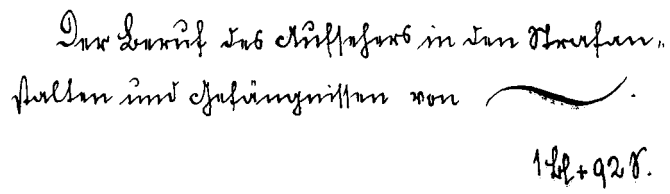 Der Beruf des Aufsehers in den Strafan-
stalten und Gefängnissen von .
1 Bl + 92 S.